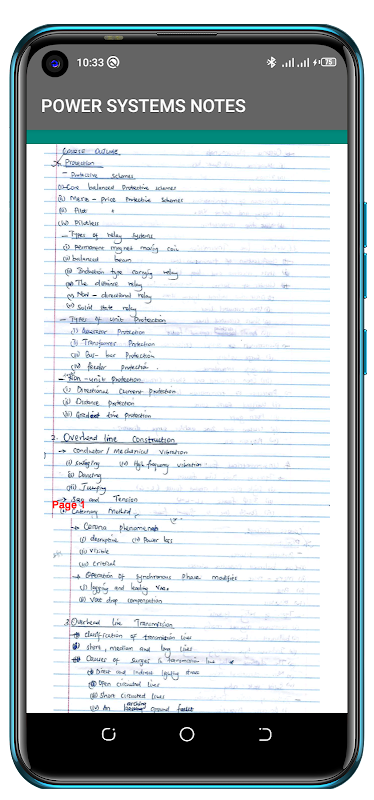 10:33
75
POWER SYSTEMS NOTES
COURSE OUTLINE
Protection
- Protective schemes
(i) Core balanced Protective schemes
(ii) Merz - Price Protective schemes
(iii) Pilot "
(iv) Pilotless
- Types of relay systems
(i) Permanent magnet moving coil
(ii) balanced beam
(iii) Induction type carrying relay
(iv) The distance relay
(v) Non - directional relay
(vi) Solid state relay
- Types of unit Protection
(i) Generator Protection
(ii) Transformer Protection
(iii) Bus- bar Protection
(iv) feeder protection.
- Non-unit protection
(i) Directional Current protection
(ii) Distance protection
(iii) Graded time protection
2. Overhead line Construction
→ Conductor / Mechanical vibration
(i) Swinging (iv) High frequency vibration
(ii) Dancing
(iii) Jumping
→ Sag and Tension
Page 1
Catenary Method
→ Corona phenomena
(i) disruptive (iv) Power loss
(ii) visible
(iii) critical
→ Operation of synchronous phase modifier
(i) lagging and leading
(ii) Volt drop compensation
3. Overhead line Transmission
classification of transmission lines
short, medium and long lines
Causes of surges in transmission line
Direct and indirect lighting
Open circuited lines
Short circuited lines
(iv) An arching ground